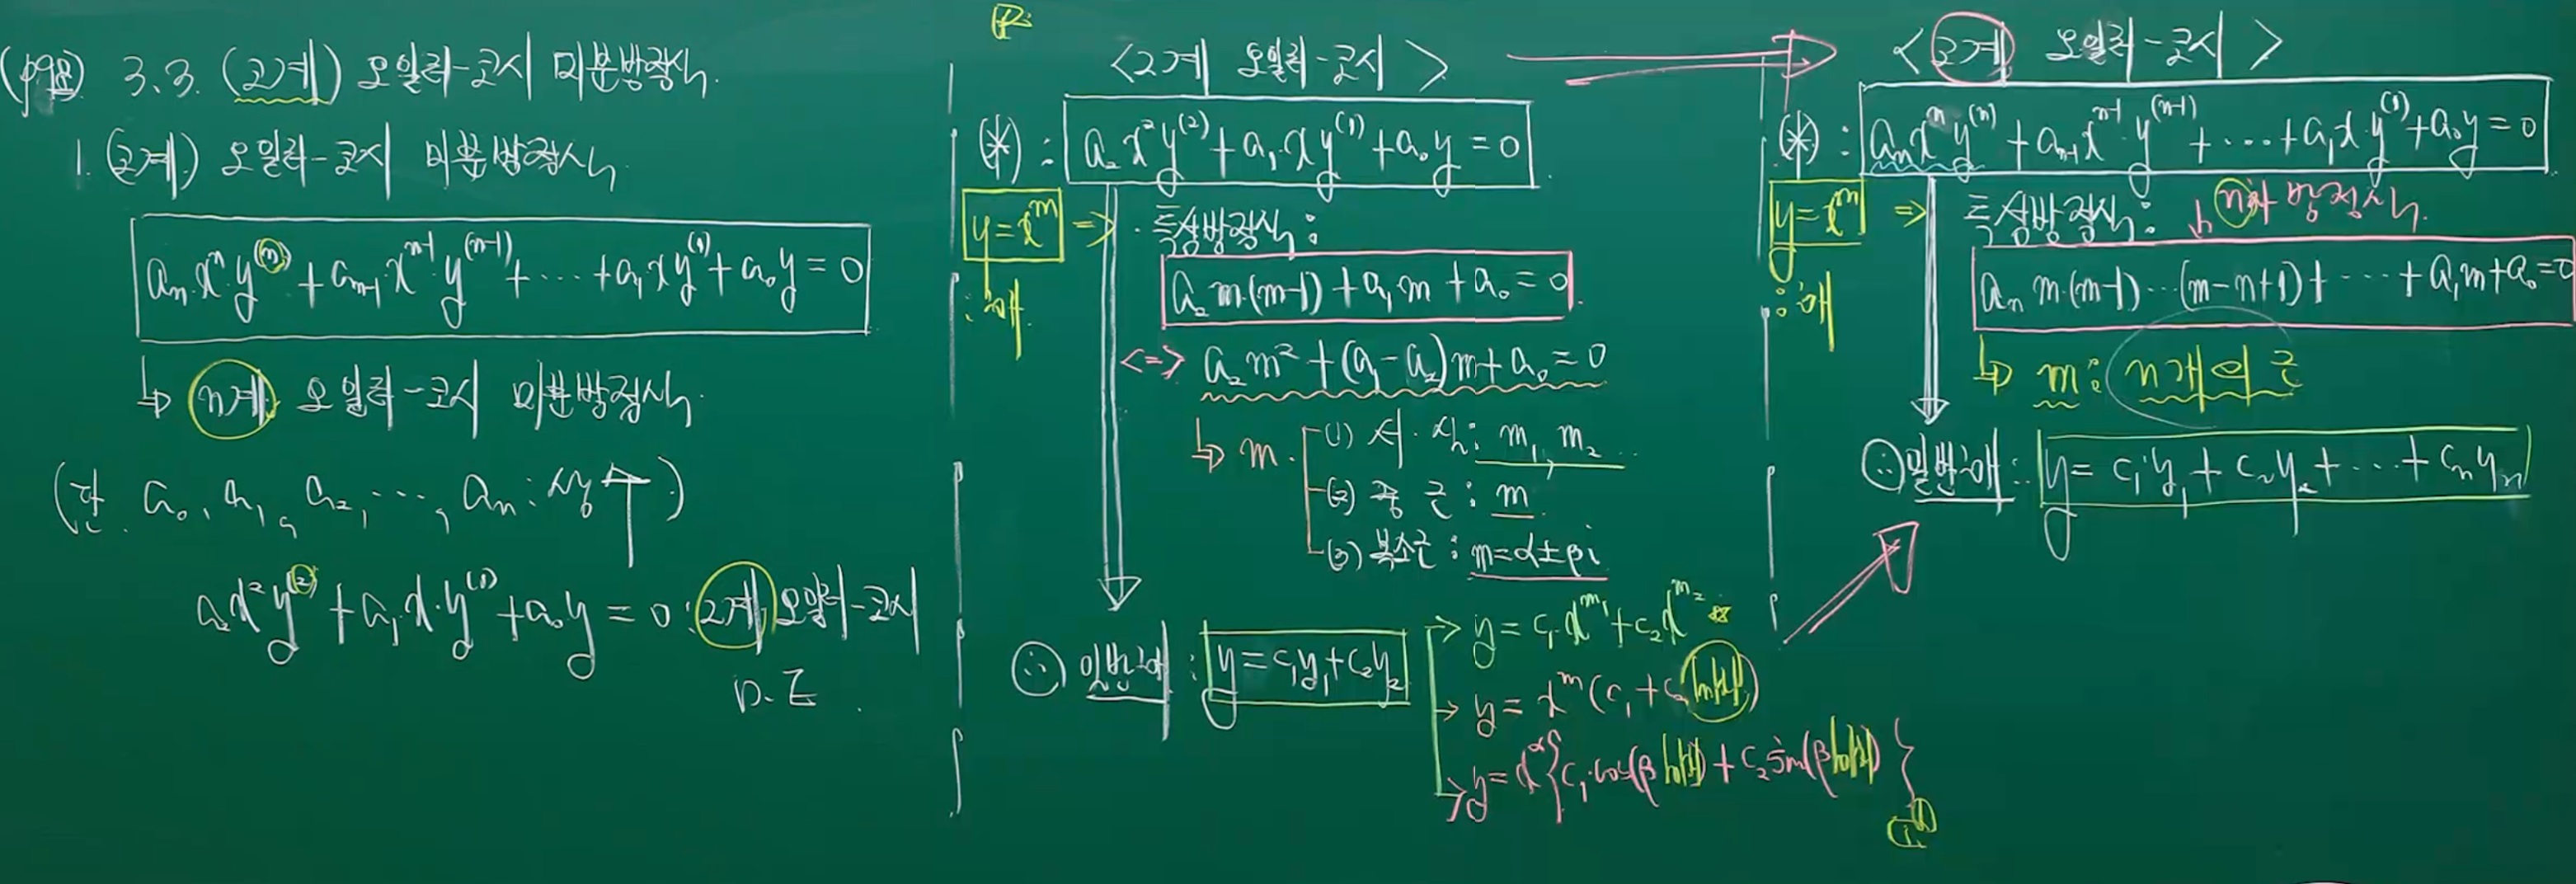 (p98) 3.3. (고계) 오일러-코시 미분방정식.
1. (고계) 오일러-코시 미분방정식.
aₙ·xⁿ·y⁽ⁿ⁾ + aₙ₋₁xⁿ⁻¹·y⁽ⁿ⁻¹⁾ + ⋯ + a₁xy⁽¹⁾ + a₀y = 0
↳ n계 오일러-코시 미분방정식.
(단. a₀, a₁, a₂, ⋯, aₙ : 상수)
a₂x²y⁽²⁾ + a₁x·y⁽¹⁾ + a₀y = 0 : 2계 오일러-코시
D.E.
<2계 오일러-코시>
(*) : a₂x²y⁽²⁾ + a₁·xy⁽¹⁾ + a₀y = 0
y = xᵐ ⇒ · 특성방정식 :
: 해.
a₂m·(m-1) + a₁m + a₀ = 0
<=> a₂m² + (a₁-a₂)m + a₀ = 0
↳ m.
(1) 서·실 : m₁, m₂
(2) 중근 : m
(3) 복소근 : m=α±βi
∴ 일반해 : y = c₁y₁ + c₂y₂
→ y = c₁·xᵐ¹ + c₂xᵐ²
→ y = xᵐ(c₁ + c₂ ln|x|)
→ y = x^α{c₁·cos(β ln|x|) + c₂ sin(β ln|x|)}
<고계 오일러-코시>
(*) : aₙxⁿy⁽ⁿ⁾ + aₙ₋₁xⁿ⁻¹·y⁽ⁿ⁻¹⁾ + ⋯ + a₁x·y⁽¹⁾ + a₀y = 0
y = xᵐ ⇒ 특성방정식 : n차 방정식.
: 해
aₙ m·(m-1)⋯(m-n+1) + ⋯ + a₁m + a₀ = 0
↳ m : n개의 근
∴ 일반해 : y = c₁y₁ + c₂y₂ + ⋯ + cₙyₙ